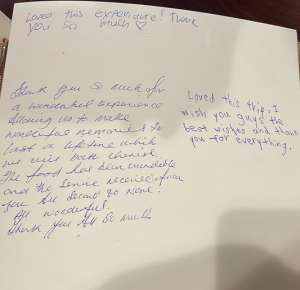 Loved this experience! Thank
you so much ♡
Thank you so much for
a wonderful experience
allowing us to make
wonderful memories to
last a lifetime which
we will both cherish.
The food has been incredible
and the service received from
you all second to none.
All wonderful.
Thank you all so much
Loved this trip, I
wish you guys the
best wishes and thank
you for everything.